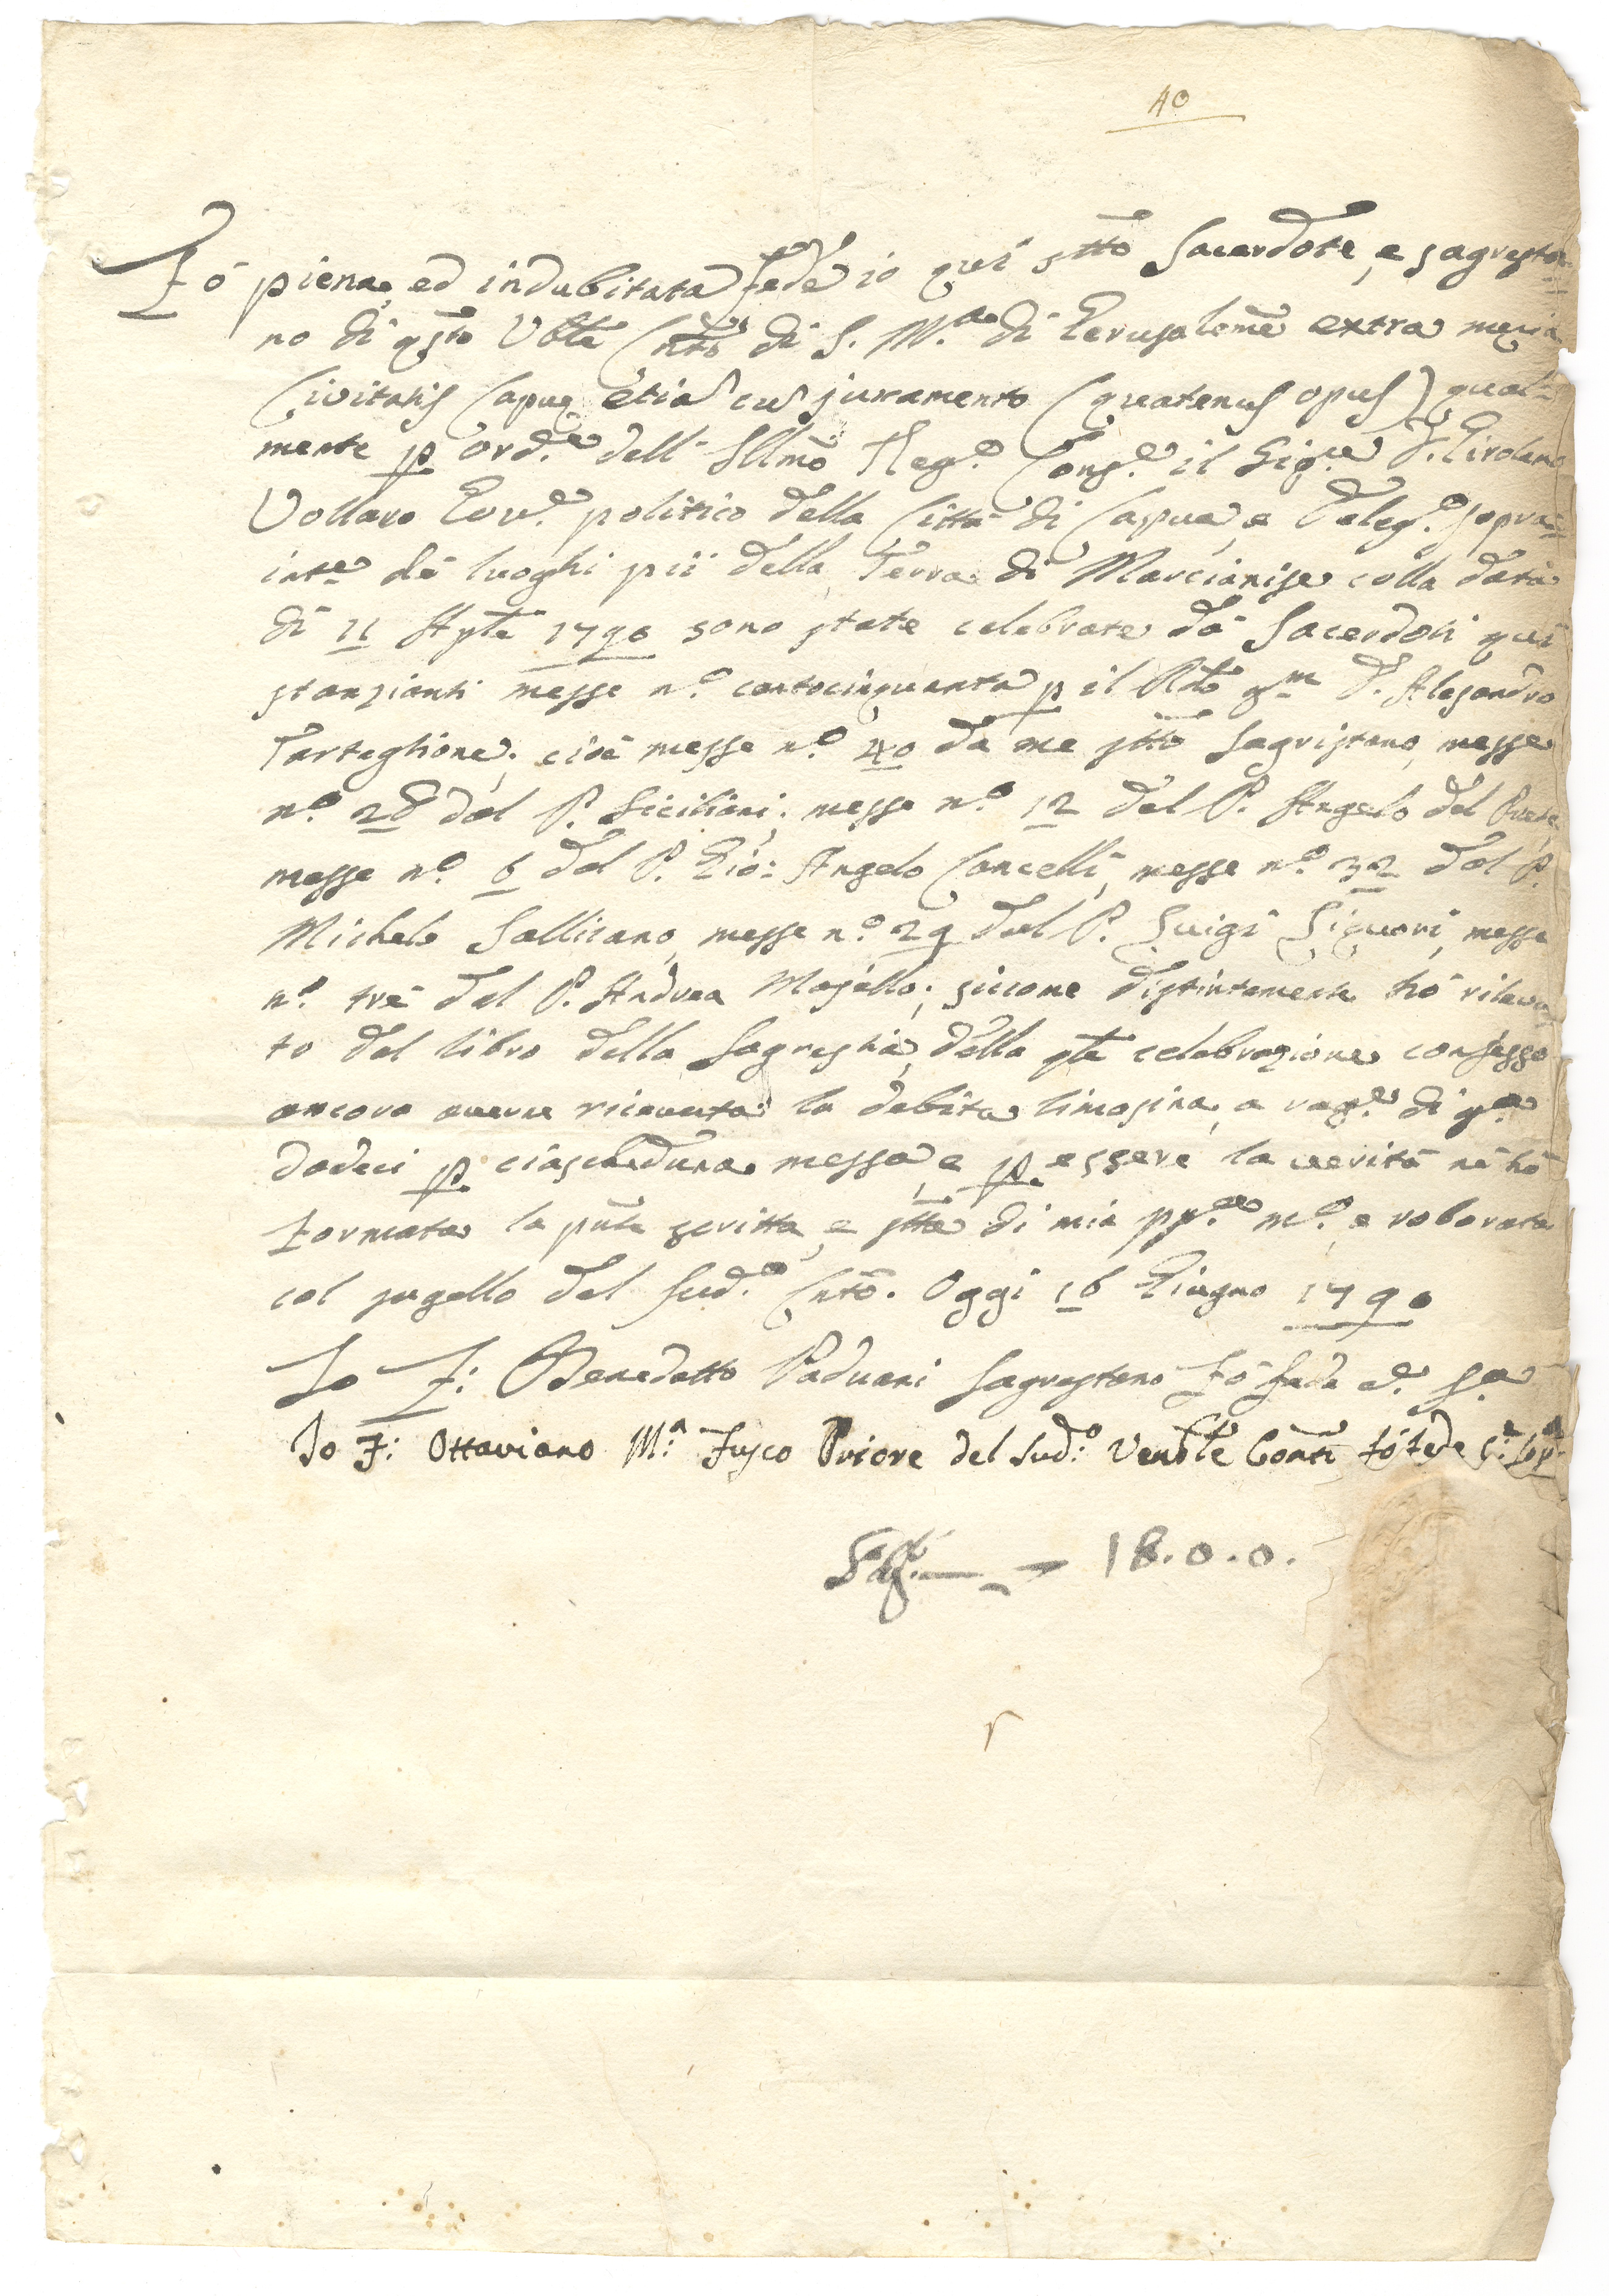 40
Fò piena, ed indubitata fede io quì stto Sacerdote, e sagresta=
no di qsto Vble Cnto di S. M.a di Gerusaleme extra menia
Civitatis Capuę etia cu juramento (quatenus opus) qual=
mente p ord.e dell' Illmo Reg.o Cons.e il Sig.re D. Girolamo
Vollaro Gov.e politico della Città di Capua, e Deleg.o sopra=
inte dè luoghi pii della Terra di Marcianise colla data
di 11 Aple 1790 sono state celebrate dà Sacerdoti quì
stanzianti messe n.o centocinquanta p il Rdo qm D. Alesandro
Tartaglione; cioè messe n.o 40 da me stto Sagristano, messe
n.o 28 dal P. Siciliani; messe n.o 12 dal P. Angelo del Prete
messe n.o 6 dal P. Gio: Angelo Cancelli, messe n.o 32 dal P.
Michele Sallicano, messe n.o 29 dal P. Luigi Liguori, messe
n.o trè dal P. Andrea Majello; siccome distintamente hò rileva=
to dal libro della Sagrestia, della qle celebrazione confesso
ancora averne ricevuta la debita limosina, a rag.e di g.a
dodeci p ciascheduna messa, e p essere la verità nè hò
formata la pnte scritta, e stta di mia pp.a m.o, e roborata
col sugello del sud.o Cnto. Oggi 16 Giugno 1790
Io F: Benedetto Paduani Sagrestano fò fede ed. s.a
Io F: Ottaviano M.a Fusco Priore del Sud:o Venble Conto fò fede
18.0.0.